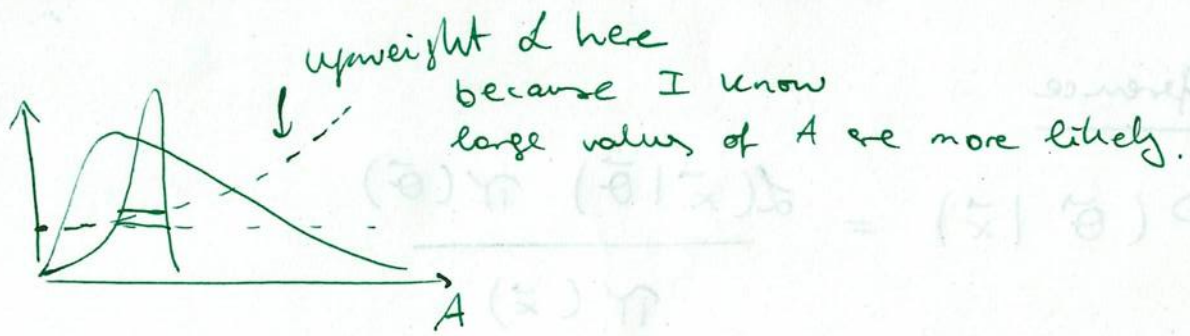 upweight L here
because I know
large values of A are more likely.
A